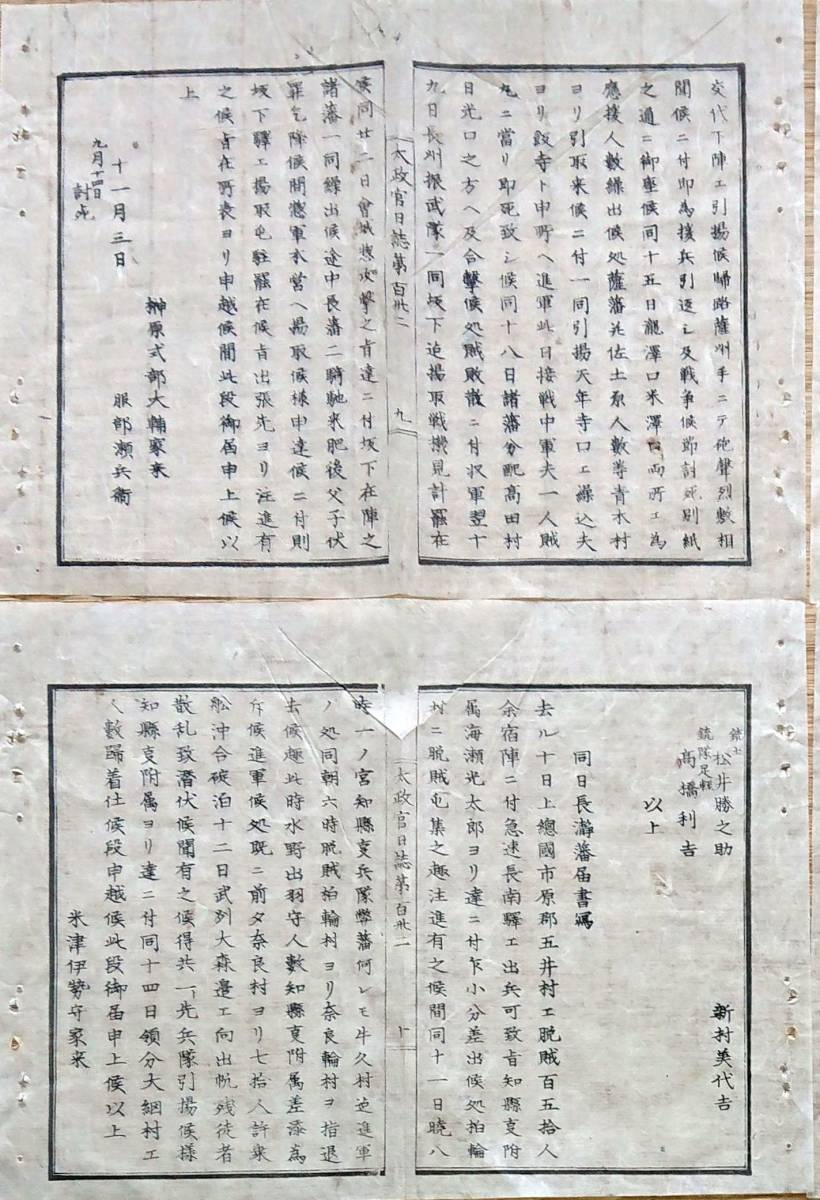 交代下陣エ引揚候歸路薩州手ニテ砲聲烈敷相
聞候ニ付即為援兵引返シ及戦争候節討死別紙
之通ニ御座候同十五日瀧澤口米澤口両所エ為
應援人數繰出候処薩藩並佐土原人數等青木村
ヨリ引取来候ニ付一同引揚天年寺口エ繰込夫
ヨリ飯寺ト申所ヘ進軍此日接戦中軍夫一人賊
丸ニ當リ即死致シ候同十八日諸藩分配高田村
日光口之方ヘ及合撃候処賊敗散ニ付収軍翌十
九日長州振武隊一同坂下迄揚取戦機見計罷在
太政官日誌第百卅二
九
候同廿二日會城惣攻撃之旨達ニ付坂下在陣之
諸藩一同繰出候途中長藩二騎馳来肥後父子伏
罪乞降候間惣軍本営ヘ揚取候様申達候ニ付則
坂下驛エ揚取屯駐罷在候旨出張先ヨリ注進有
之候旨在所表ヨリ申越候間此段御届申上候以
上
十一月三日
榊原式部大輔家来
服部瀬兵衛
九月十四日
討死
銃士
松井勝之助
銃隊足軽
高橋利吉
新村美代吉
以上
同日長瀞藩届書寫
去ル十日上總國市原郡五井村エ脱賊百五拾人
余宿陣ニ付急速長南驛エ出兵可致旨知縣事附
属海瀬光太郎ヨリ達ニ付乍小分差出候処拍輪
村ニ脱賊屯集之趣注進有之候間同十一日暁八
太政官日誌第百卅二
十
時一ノ宮知縣事兵隊弊藩何レモ牛久村迄進軍
ノ処同朝六時脱賊拍輪村ヨリ奈良輪村ヲ指退
去候趣此時水野出羽守人數知縣事附属差添為
斥候進軍候処既ニ前夕奈良村ヨリ七拾人許乗
舩沖合碇泊十二日武列大森邉エ向出帆残徒者
散乱致潜伏候聞有之候得共一ト先兵隊引揚候様
知縣事附属ヨリ達ニ付同十四日領分大網村エ
人數歸着仕候段申越候此段御届申上候以上
米津伊勢守家来